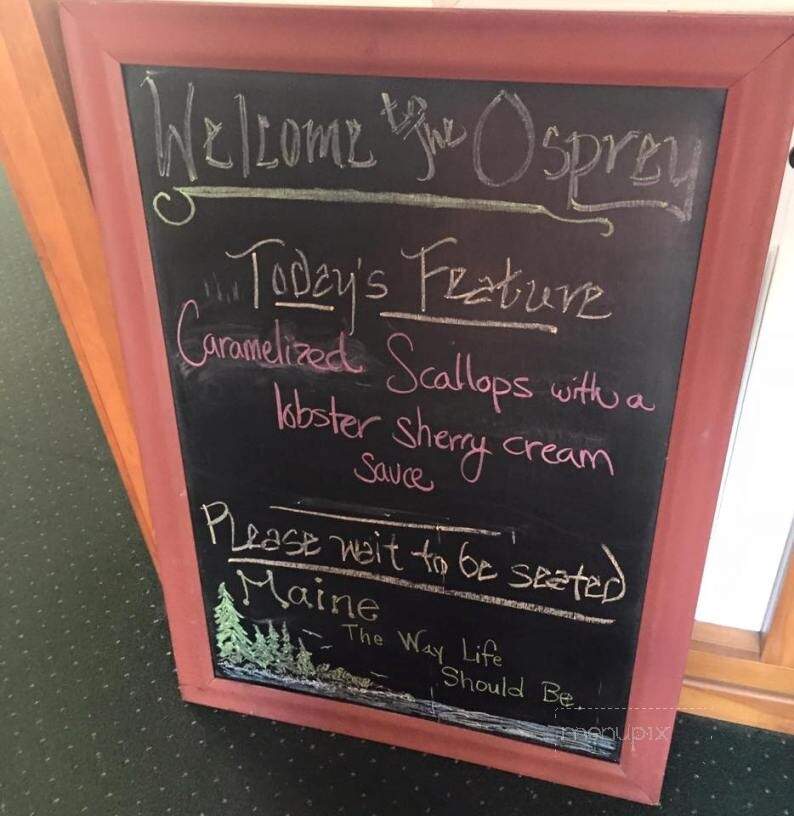 Welcome to the Osprey
Today's Feature
Caramelized Scallops with a
lobster sherry cream
sauce
Please wait to be seated
Maine
The Way Life
Should Be
menupix